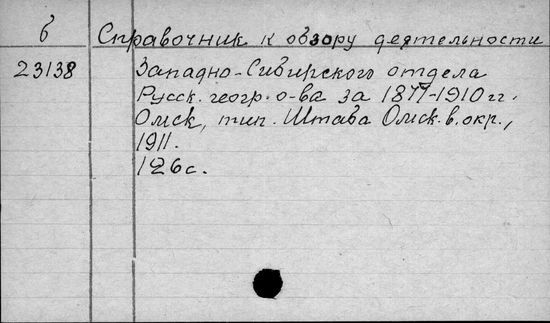 б Справочник к обзору деятельности
23138 Западно-Сибирского отдела
Русск. геогр. о-ва за 1877-1910 гг.
Омск, тип. Штаба Омск. в. окр.,
1911.
126 с.